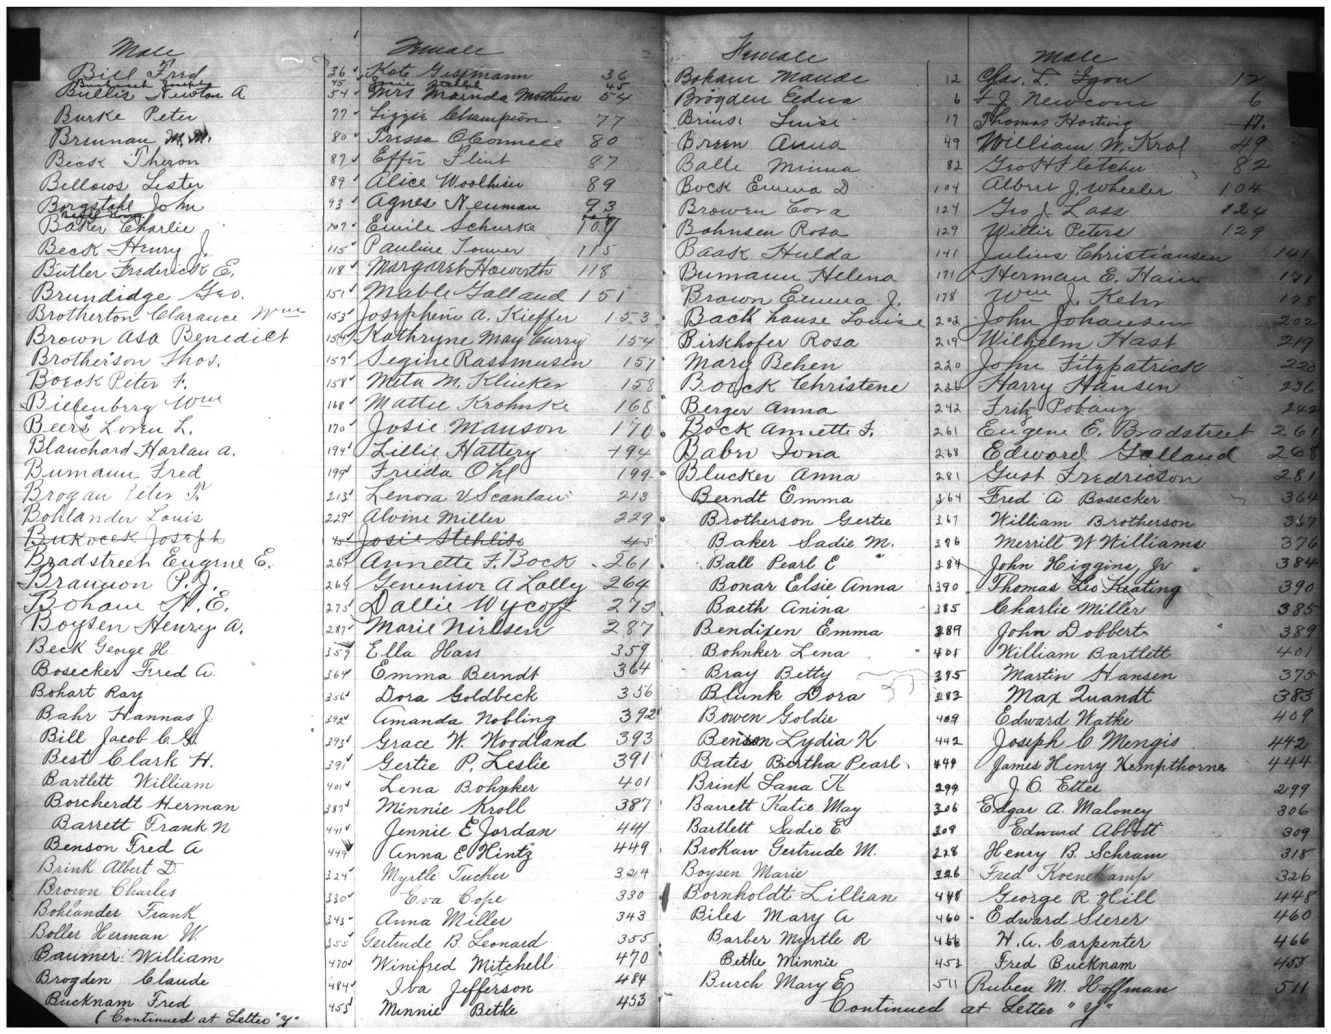 Male Female
Bill Fred 36 Kate Gissmann 36
45 45
Bullis Newton A 54 Mrs Morinda Mathews 54
Burke Peter 77 Lizzie Champion 77
Brennan M. M. 80 Tressa O'Connell 80
Beck Theron 87 Effie Flint 87
Bellows Lester 89 Alice Woolhiser 89
Borgstahl John 93 Agnes Neuman 93
Baker Charlie 107 Emilie Schurke 107
Beck Henry J. 115 Pauline 115
Butler Frederick E. 118 Margaret Haworth 118
Brundidge Geo. 151 Mable Galland 151
Brotherton Clarance Wm 153 Josephine A. Kieffer 153
Brown Asa Benedict 154 Kathryne May Curry 154
Brotherson Thos. 157 Segine Rassmusen 157
Boeck Peter F. 158 Meta M. Klinker 158
Billenbrry Wm 168 Mattie Krohnke 168
Beers Loren L. 170 Josie Manson 170
Blanchard Harlan A. 194 Lillie Hattery 194
Bumann Fred 199 Frieda Ohl 199
Brogan Peter F. 213 Lenora V Scanlan 213
Bohlander Louis 229 Alvine Miller 229
Bukocek Joseph 45 Josie Stehlik 45
Bradstreet Eugene E. 261 Annette F. Bock 261
Brannon P. J. 264 Genevieve A Lally 264
Boham N. E. 275 Dallie Wycoff 275
Boysen Henry A. 287 Marie Nielsen 287
Beck George H 359 Ella Hass 359
Bosecker Fred A 364 Emma Berndt 364
Bohart Ray 356 Dora Goldbeck 356
Bahr Hannas J. 392 Amanda Nobling 392
Bill Jacob C. G. 393 Grace W. Woodland 393
Best Clark H. 391 Gertie P. Leslie 391
Bartlett William 401 Lena Bohnker 401
Borcherdt Herman 387 Minnie Kroll 387
Barrett Frank N 441 Jennie E Jordan 441
Benson Fred A 449 Anna E Hintz 449
Brink Albert D. 324 Myrtle Tucker 324
Brown Charles 330 Eva Cope 330
Bohlander Frank 343 Anna Miller 343
Boller Herman W. 355 Gertrude B. Leonard 355
Baumer William 470 Winifred Mitchell 470
Brogden Claude 484 Iva Jefferson 484
Bucknam Fred 453 Minnie Betke 453
(Continued at Letter "Y"
Female Male
Boham Maude 12 Chas. L. Igou 12
Brogden Edna 6 F J Newcom 6
Brinst Luise 17 Thomas Harting 17
Breen Anna 49 William W. Krol 49
Balle Minna 82 Geo H Fletcher 82
Bock Emma D 104 Albert J. Wheeler 104
Browen Cora 124 Geo J. Lass 124
Bohnsen Rosa 129 Willie Peters 129
Baak Hulda 141 Julius Christiansen 141
Bumann Helena 171 Herman E. Hain 171
Brown Emma J. 178 Wm J. Kehr 178
Backhause Louise 202 John Johansen 202
Birkhofer Rosa 219 Wilhelm Hast 219
Mary Behen 220 John Fitzpatrick 220
Boeck Christene 236 Harry Hansen 236
Berger Anna 242 Fritz Pobanz 242
Bock Annette F. 261 Eugene E. Bradstreet 261
Baber Iona 268 Edword Galland 268
Blucker Anna 281 Gust Fredricson 281
Berndt Emma 364 Fred A Bosecker 364
Brotherson Gertie 367 William Brotherson 367
Baker Sadie M. 376 Merrill W Williams 376
Ball Pearl E 384 John Higgins Jr 384
Bonar Elsie Anna 390 Thomas Leo Keating 390
Baeth Anina 385 Charlie Miller 385
Bendixen Emma 389 John Dobbert 389
Bohnker Lena 401 William Bartlett 401
Bray Betty 375 Martin Hansen 375
Blunk Dora 383 Max Quandt 383
Bowen Goldie 409 Edward Watke 409
Benson Lydia K 442 Joseph C Mengis 442
Bates Bertha Pearl 444 James Henry Kempthorne 444
Brink Lana K 299 J. O. Etter 299
Barrett Katie May 306 Edgar A. Maloney 306
Bartlett Sadie E 309 Edward Abbott 309
Brokaw Gertrude M. 318 Henry B. Schram 318
Boysen Marie 326 Fred Koenekamp 326
Bornholdt Lillian 448 George R Hill 448
Biles Mary A 460 Edward Sterer 460
Barber Myrtle R 466 H. A. Carpenter 466
Betke Minnie 453 Fred Bucknam 453
Burch Mary E 511 Ruben M. Hoffman 511
Continued at Letter "Y"